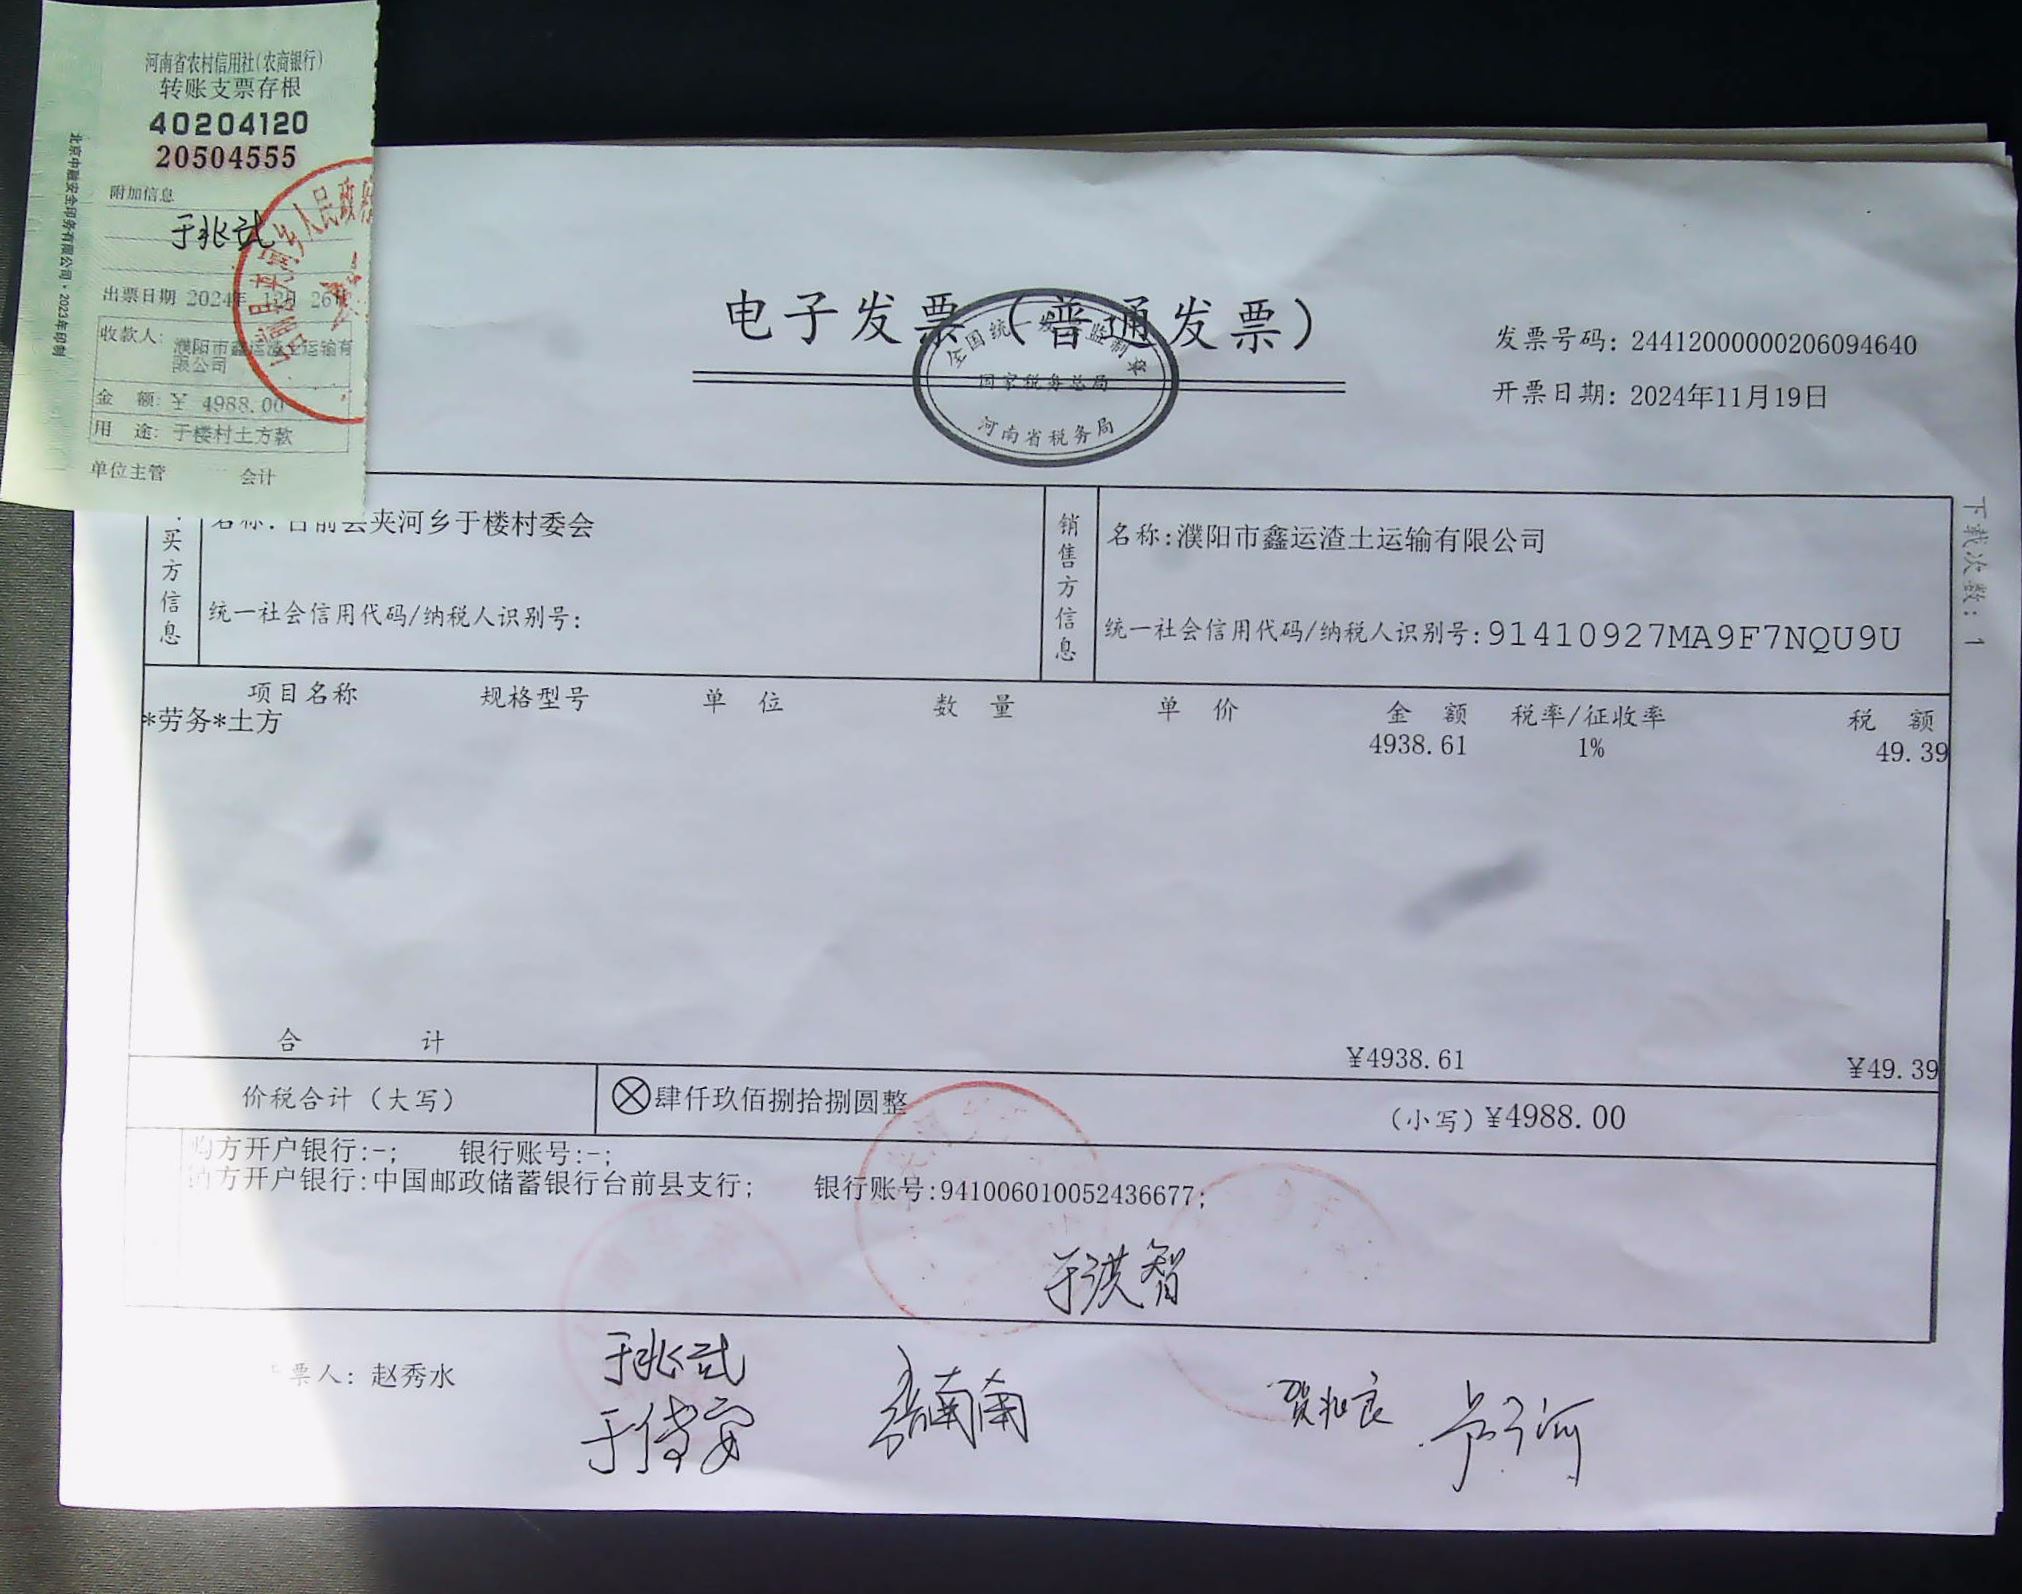 河南省农村信用社(农商银行)
转账支票存根
40204120
20504555
附加信息
于兆武
出票日期 2024年 12月 26日
收款人: 濮阳市鑫运渣土运输有
限公司
金 额: ¥ 4988.00
用 途: 于楼村土方款
单位主管 会计
北京中融安全印务有限公司·2023年印制
电子发票（普通发票）
全国统一发票监制章
国家税务总局
河南省税务局
发票号码: 24412000000206094640
开票日期: 2024年11月19日
下载次数: 1
买方信息
名称: 台前县夹河乡于楼村委会
统一社会信用代码/纳税人识别号:
销售方信息
名称:濮阳市鑫运渣土运输有限公司
统一社会信用代码/纳税人识别号:91410927MA9F7NQU9U
项目名称 规格型号 单 位 数 量 单 价 金 额 税率/征收率 税 额
*劳务*土方 4938.61 1% 49.39
合 计 ¥4938.61 ¥49.39
价税合计（大写） ⊗肆仟玖佰捌拾捌圆整 (小写)¥4988.00
购方开户银行:-; 银行账号:-;
销方开户银行:中国邮政储蓄银行台前县支行; 银行账号:941006010052436677;
于洪智
票人: 赵秀水
于兆武
于传安
南南
贺兆良